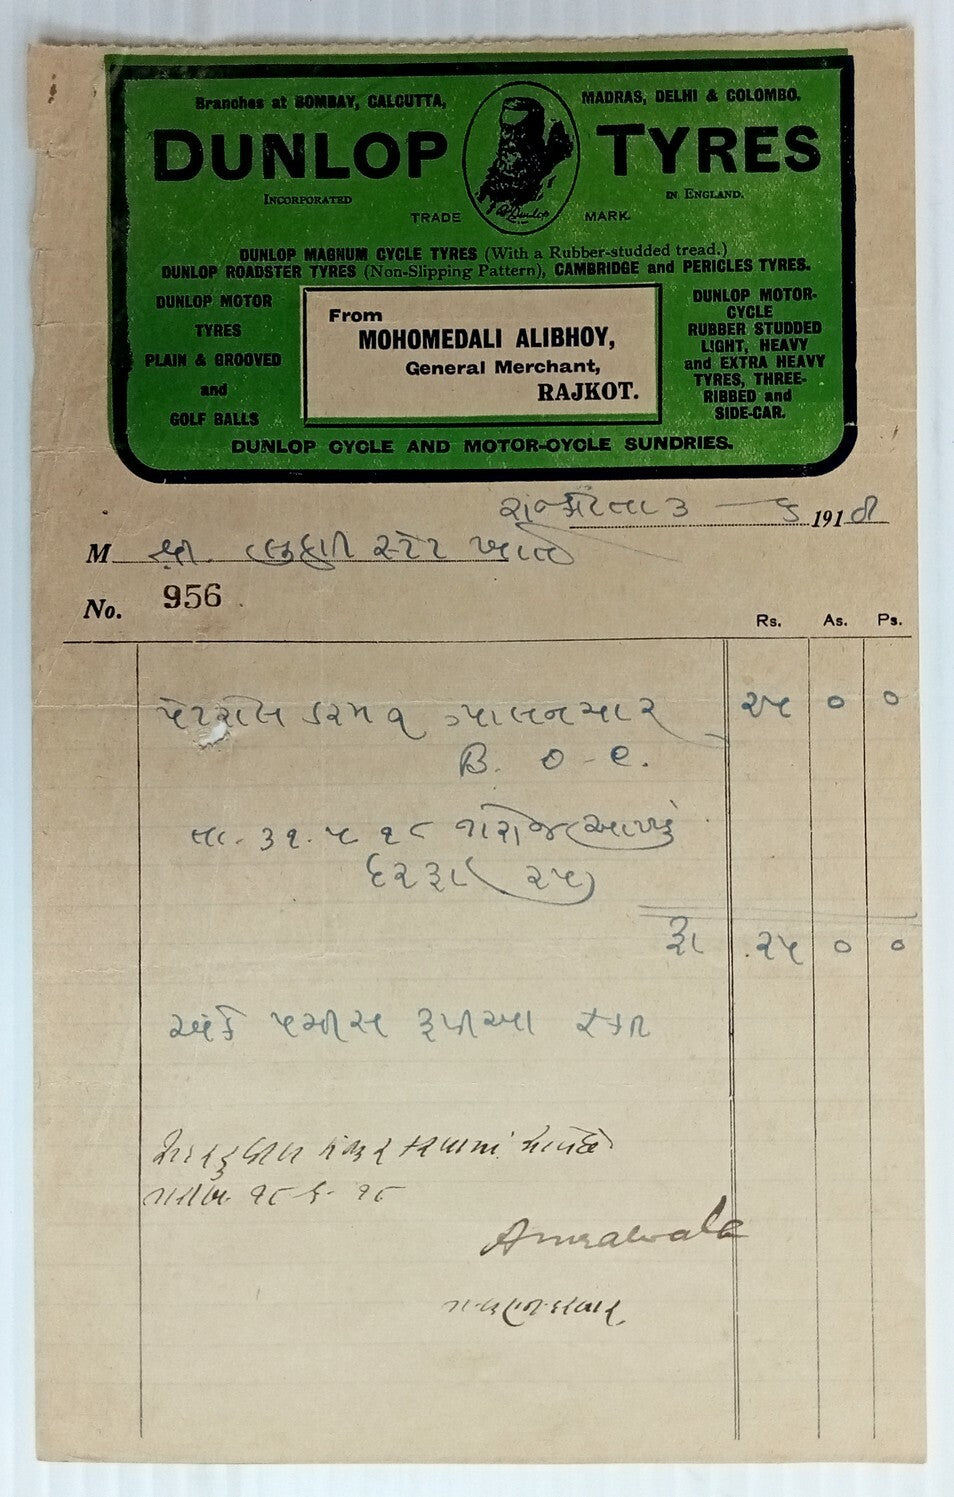 Branches at BOMBAY, CALCUTTA, MADRAS, DELHI & COLOMBO.
DUNLOP TYRES
INCORPORATED IN ENGLAND.
TRADE MARK.
DUNLOP MAGNUM CYCLE TYRES (With a Rubber-studded tread.)
DUNLOP ROADSTER TYRES (Non-Slipping Pattern), CAMBRIDGE and PERICLES TYRES.
DUNLOP MOTOR
TYRES
PLAIN & GROOVED
and
GOLF BALLS
From
MOHOMEDALI ALIBHOY,
General Merchant,
RAJKOT.
DUNLOP MOTOR-
CYCLE
RUBBER STUDDED
LIGHT, HEAVY
and EXTRA HEAVY
TYRES, THREE-
RIBBED and
SIDE-CAR.
DUNLOP CYCLE AND MOTOR-CYCLE SUNDRIES.
રાજકોટ તા ૩ — ૬ 191૮
M શ્રી સ્ટેટ ખાતે
No. 956
Rs. As. Ps.
પેટરોલ ડરમ ૧ ગ્યાલન ચાર ૨૫ ૦ ૦
B. O. C.
તા. ૩૧. ૫ ૧૮ ના રોજ આપ્યું
દર રૂા ૨૫
રૂા ૨૫ ૦ ૦
અંકે પચીસ રૂપીઆ
૧૮ ૬ ૧૮
Amrawala